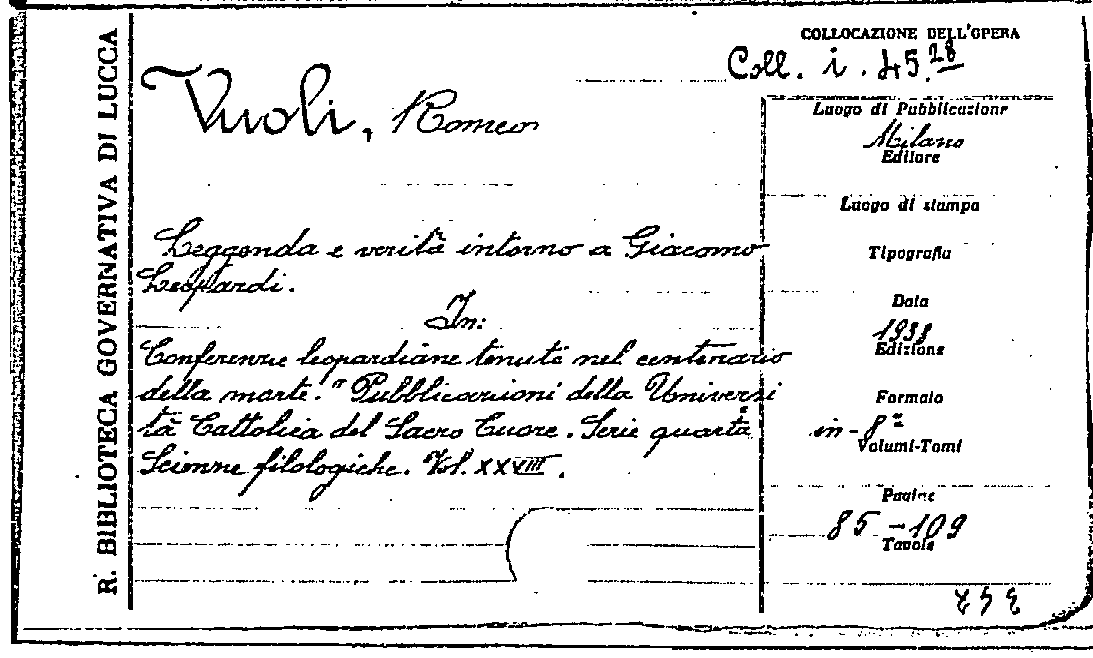 R. BIBLIOTECA GOVERNATIVA DI LUCCA
COLLOCAZIONE DELL'OPERA
Coll. i. 45.28
Vuoli, Romeo
Leggenda e verità intorno a Giacomo
Leopardi.
In:
Conferenze leopardiane tenute nel centenario
della morte. "Pubblicazioni della Universi
tà Cattolica del Sacro Cuore. Serie quarta"
Scienze filologiche. Vol. XXVIII.
Luogo di Pubblicazione
Milano
Editore
Luogo di stampa
Tipografia
Data
1938
Edizione
Formato
in-8°
Volumi-Tomi
Pagine
85-109
Tavole